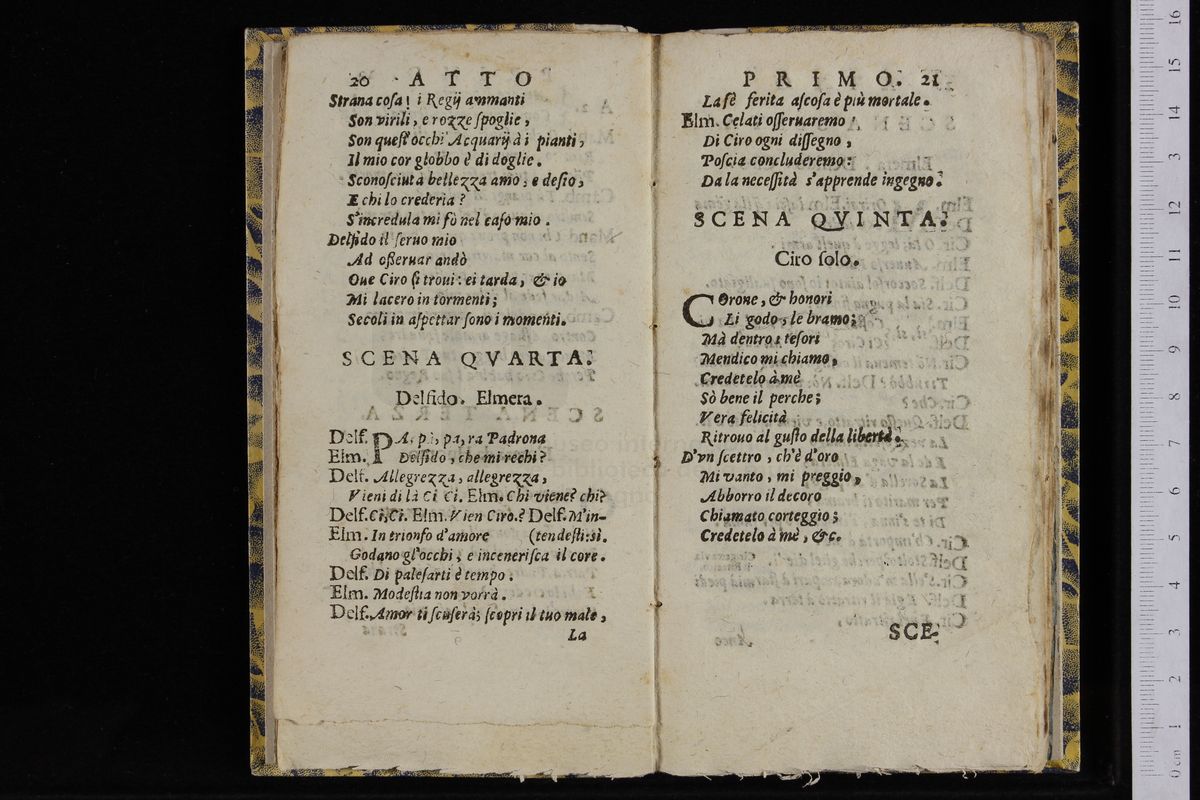 20 ATTO
Strana cosa! i Regij ammanti
Son virili, e rozze spoglie,
Son quest'occhi Acquarij à i pianti,
Il mio cor globbo è di doglie.
Sconosciuta bellezza amo, e desio,
E chi lo crederia?
S'incredula mi fò nel caso mio.
Delfido il seruo mio
Ad osseruar andò
Oue Ciro si troui: ei tarda, & io
Mi lacero in tormenti;
Secoli in aspettar sono i momenti.
SCENA QVARTA.
Delfido. Elmera.
Delf. PA, pà, pa, ra Padrona
Elm. Delfido, che mi rechi?
Delf. Allegrezza, allegrezza,
Vieni di là Ci Ci. Elm. Chi viene? chi?
Delf. Ci, Ci. Elm. Vien Ciro.? Delf. M'in-
Elm. In trionfo d'amore (tendesti: sì.
Godano gl'occhi, e incenerisca il core.
Delf. Di palesarti è tempo.
Elm. Modestia non vorrà.
Delf. Amor ti scuserà; scopri il tuo male,
La
PRIMO. 21
La fè ferita ascosa è più mortale.
Elm. Celati osseruaremo
Di Ciro ogni dissegno,
Poscia concluderemo:
Da la necessità s'apprende ingegno.
SCENA QVINTA.
Ciro solo.
COrone, & honori
Li godo, le bramo;
Mà dentro i tesori
Mendico mi chiamo,
Credetelo à mè
Sò bene il perche;
Vera felicità
Ritrouo al gusto della libertà.
D'vn scettro, ch'è d'oro
Mi vanto, mi preggio,
Abborro il decoro
Chiamato corteggio;
Credetelo à mè, &c.
SCE-